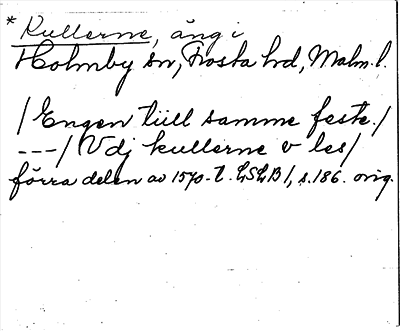 * Kullerne, äng i
Holmby sn, Frosta hd, Malm. l.
/ Engen tiill samme feste. /
--- / Vdj kullerne v les /
förra delen av 1570-t. LSLB 1, s. 186. orig.